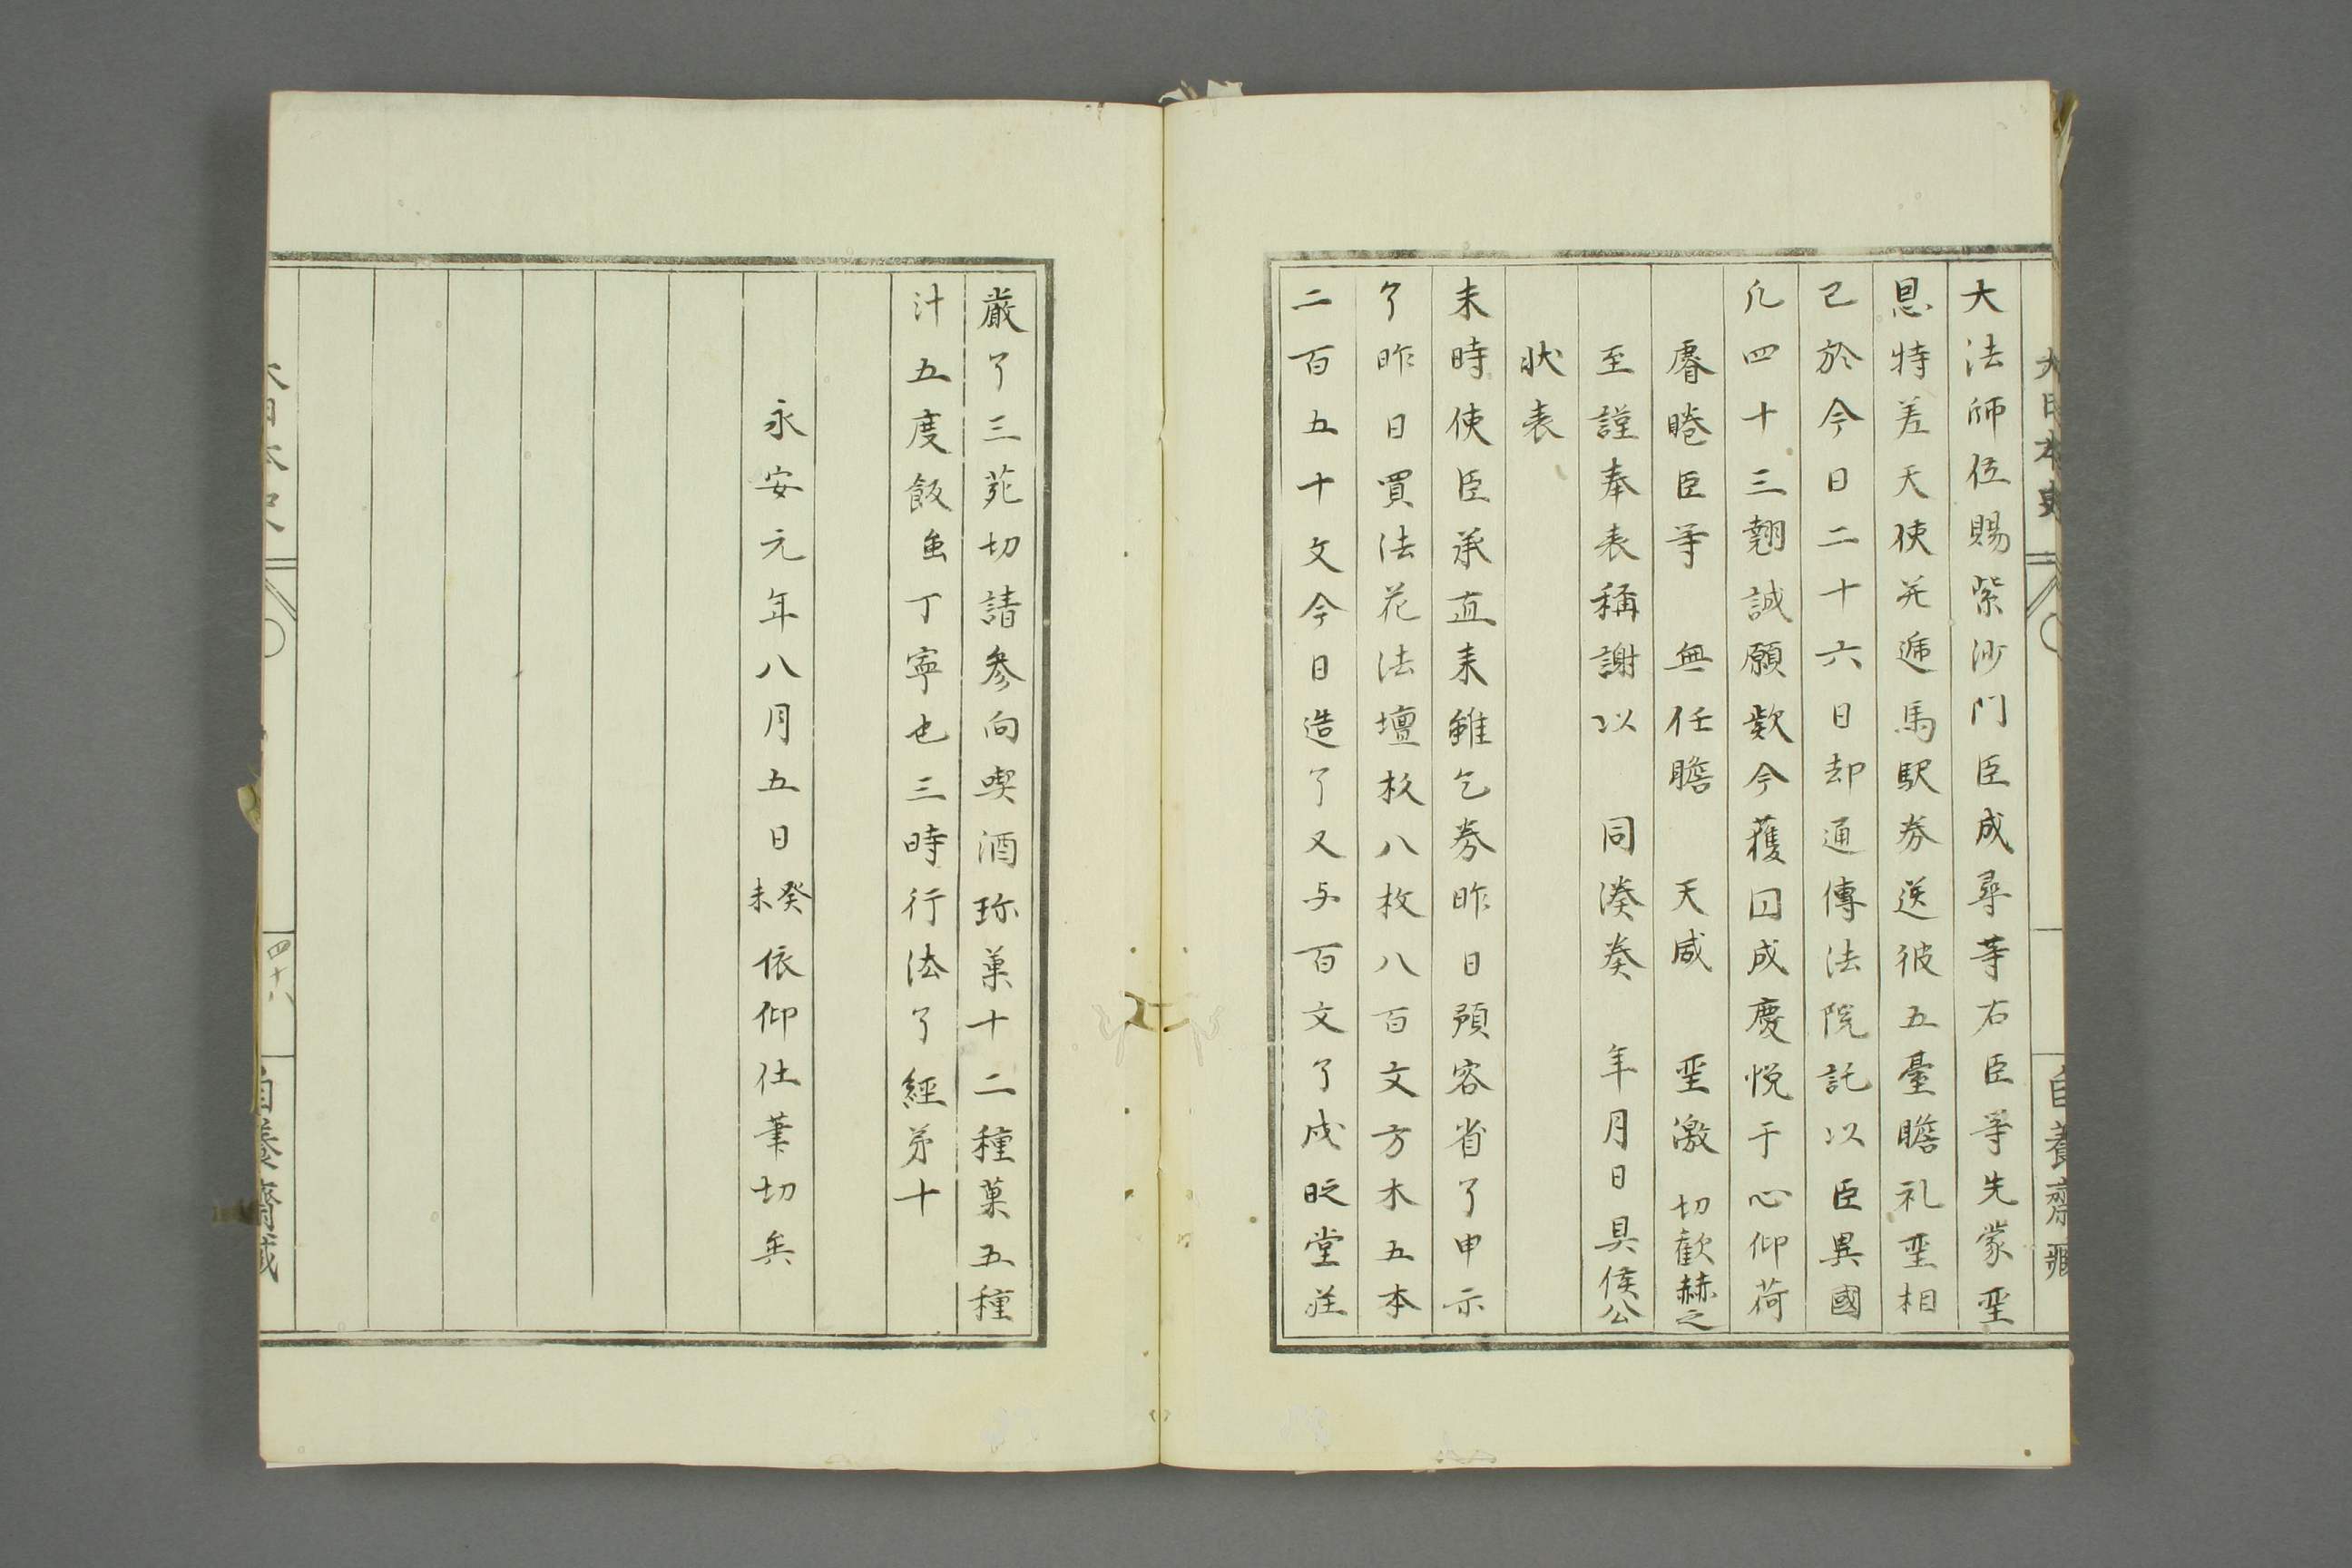 大日本史
自養齋藏
大法師位賜紫沙門臣成尋等右臣等先蒙聖
恩特差天使并逓馬駅券送彼五臺瞻礼聖相
已於今日二十六日却通傳法院訖以臣異國
凡四十三翹誠願歎今獲囙成慶悦于心仰荷
睿睠臣等　無任瞻　天咸　聖激　切歡赫之
至謹奉表稱謝以　同湊奏　年月日具侯公
状表
未時使臣承直来雖乞券昨日預容省了申示
了昨日買法花法壇杉八枚八百文方木五本
二百五十文今日造了又与百文了戌時堂荘
厳了三苑切請参向喫酒珎菓十二種菓五種
汁五度飯魚丁寧也三時行法了經第十
永安元年八月五日癸未依仰仕筆切矣
大日本史
四十八
自養齋藏